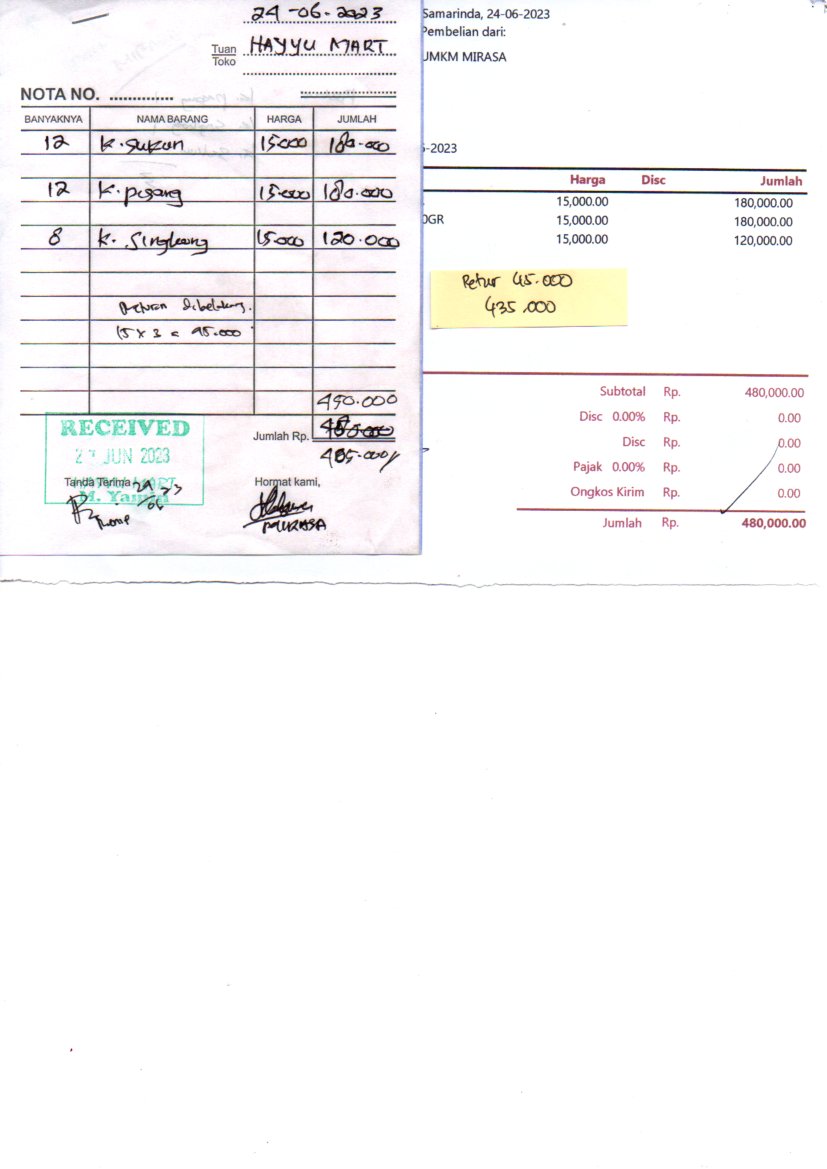 24-06-2023
Tuan
Toko
HAYYU MART
NOTA NO. ..............
BANYAKNYA NAMA BARANG HARGA JUMLAH
12 K. Sukun 15.000 180.000
12 K. pisang 15.000 180.000
8 K. Singkong 15.000 120.000
Returan dibelakang.
15 x 3 = 45.000
480.000
Jumlah Rp.
435.000
RECEIVED
27 JUN 2023
Tanda Terima
Hormat kami,
M. Yamin
MIRASA
Samarinda, 24-06-2023
Pembelian dari:
UMKM MIRASA
-2023
Harga Disc Jumlah
15,000.00 180,000.00
OGR 15,000.00 180,000.00
15,000.00 120,000.00
Retur 45.000
435.000
Subtotal Rp. 480,000.00
Disc 0.00% Rp. 0.00
Disc Rp. 0.00
Pajak 0.00% Rp. 0.00
Ongkos Kirim Rp. 0.00
Jumlah Rp. 480,000.00